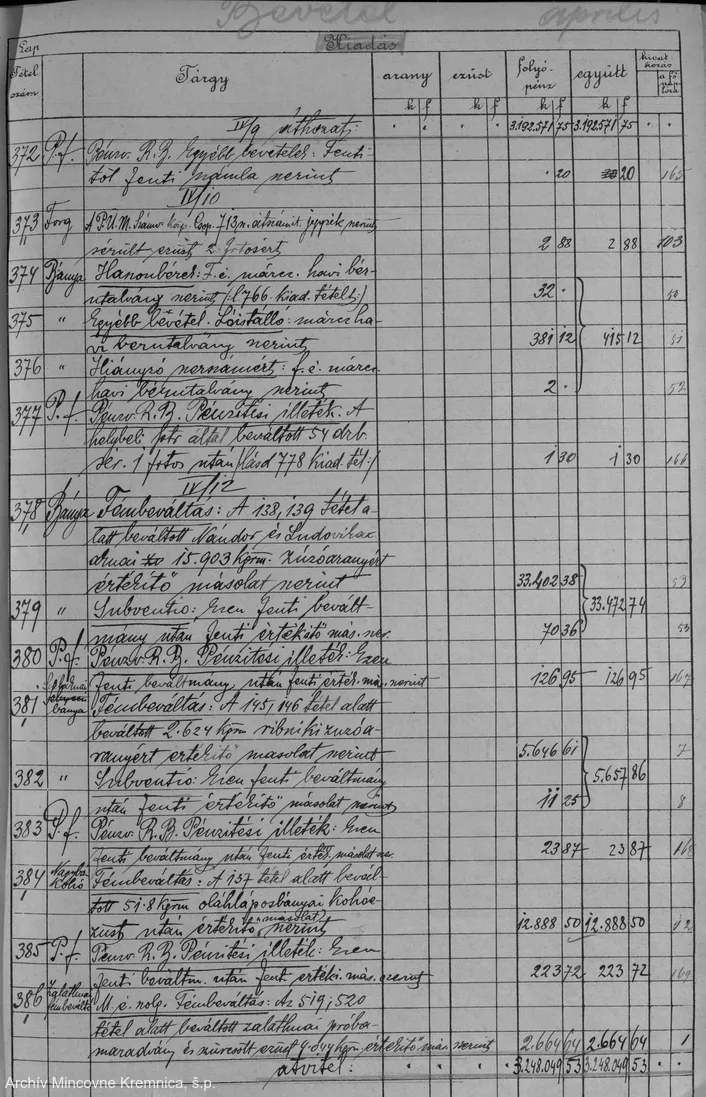 Bevétel április
Kiadás
Lap
Tétel szám
Tárgy
arany
ezüst
folyópénz
együtt
hivatkozás
a főnaplóra
k f k f k f k f
IV/9 áthozat: 3.192.571 75 3.192.571 75
372 P.f. Pénzv. R. B. Egyébb bevételek: Fenti-
től fenti számla szerint 20 20 165
IV/10
373 Forg A P.Ü.M. Számv. Közp. Csop. 713 n. átszámít. jegyzék szerint
sérült ezüst 2 frtosért 2 88 2 88 103
374 Bánya Haszonbérek: F. é. márcz. havi bér-
utalvány szerint /:l. 766. kiad. tételt:/ 32
375 " Egyébb bevétel. Lóistálló: márcz ha-
vi bérutalvány szerint 381 12 415 12 51
376 " Hiányzó szerszámért: f. é. márcz.
havi bérutalvány szerint 2 52
377 P.f. Pénzv. R. B. Pénzítési illeték. A
helybeli által beváltott 54 drb.
sér. 1 frtos után /lásd 778 kiad. tét:/ 1 30 1 30 166
IV/12
378 Bánya Fémbeváltás: A 138, 139 tétel a-
latt beváltott Nándor és Ludovika
aknai 15.903 kgrm. zúzóaranyért
értékítő másolat szerint 33.402 38 53
379 " Subventio: Ezen fenti bevált- 33.472 74
mány után fenti értékítő más. szer. 70 36 53
380 P.f. Pénzv. R. B. Pénzítési illeték: Ezen
fenti beváltmány után fenti érték. más. szerint 126 95 126 95 167
381 bánya Fémbeváltás: A 145, 146 tétel alatt
beváltott 2.624 kgrm ribniki zúzóa-
ranyért értékítő másolat szerint 5.646 61 7
382 " Subventió: Ezen fenti beváltmány 5.657 86
után fenti értékítő másolat szerint 11 25 8
383 P.f. Pénzv. R. B. Pénzítési illeték: Ezen
fenti beváltmány után fenti érték. másolat sze. 23 87 23 87 168
384 Nagybá Kohó Fémbeváltás: A 157 tétel alatt bevál-
tott 51.8 kgrm oláhláposbányai kohóe-
züst után értékítő másolat szerint 12.888 50 12.888 50 12
385 P.f. Pénzv. R. B. Pénzítési illeték: Ezen
fenti beváltm. után fenti értékí. más. szerint 223 72 223 72 169
386 Zalathnai fémbeváltó M. é. szolg. Fémbeváltás: Az 519, 520
tétel alatt beváltott zalathnai próba-
maradvány és ezüst értékítő más. szerint 2.664 64 2.664 64 1
átvitel: 3.248.049 53 3.248.049 53
Archív Mincovne Kremnica, š.p.